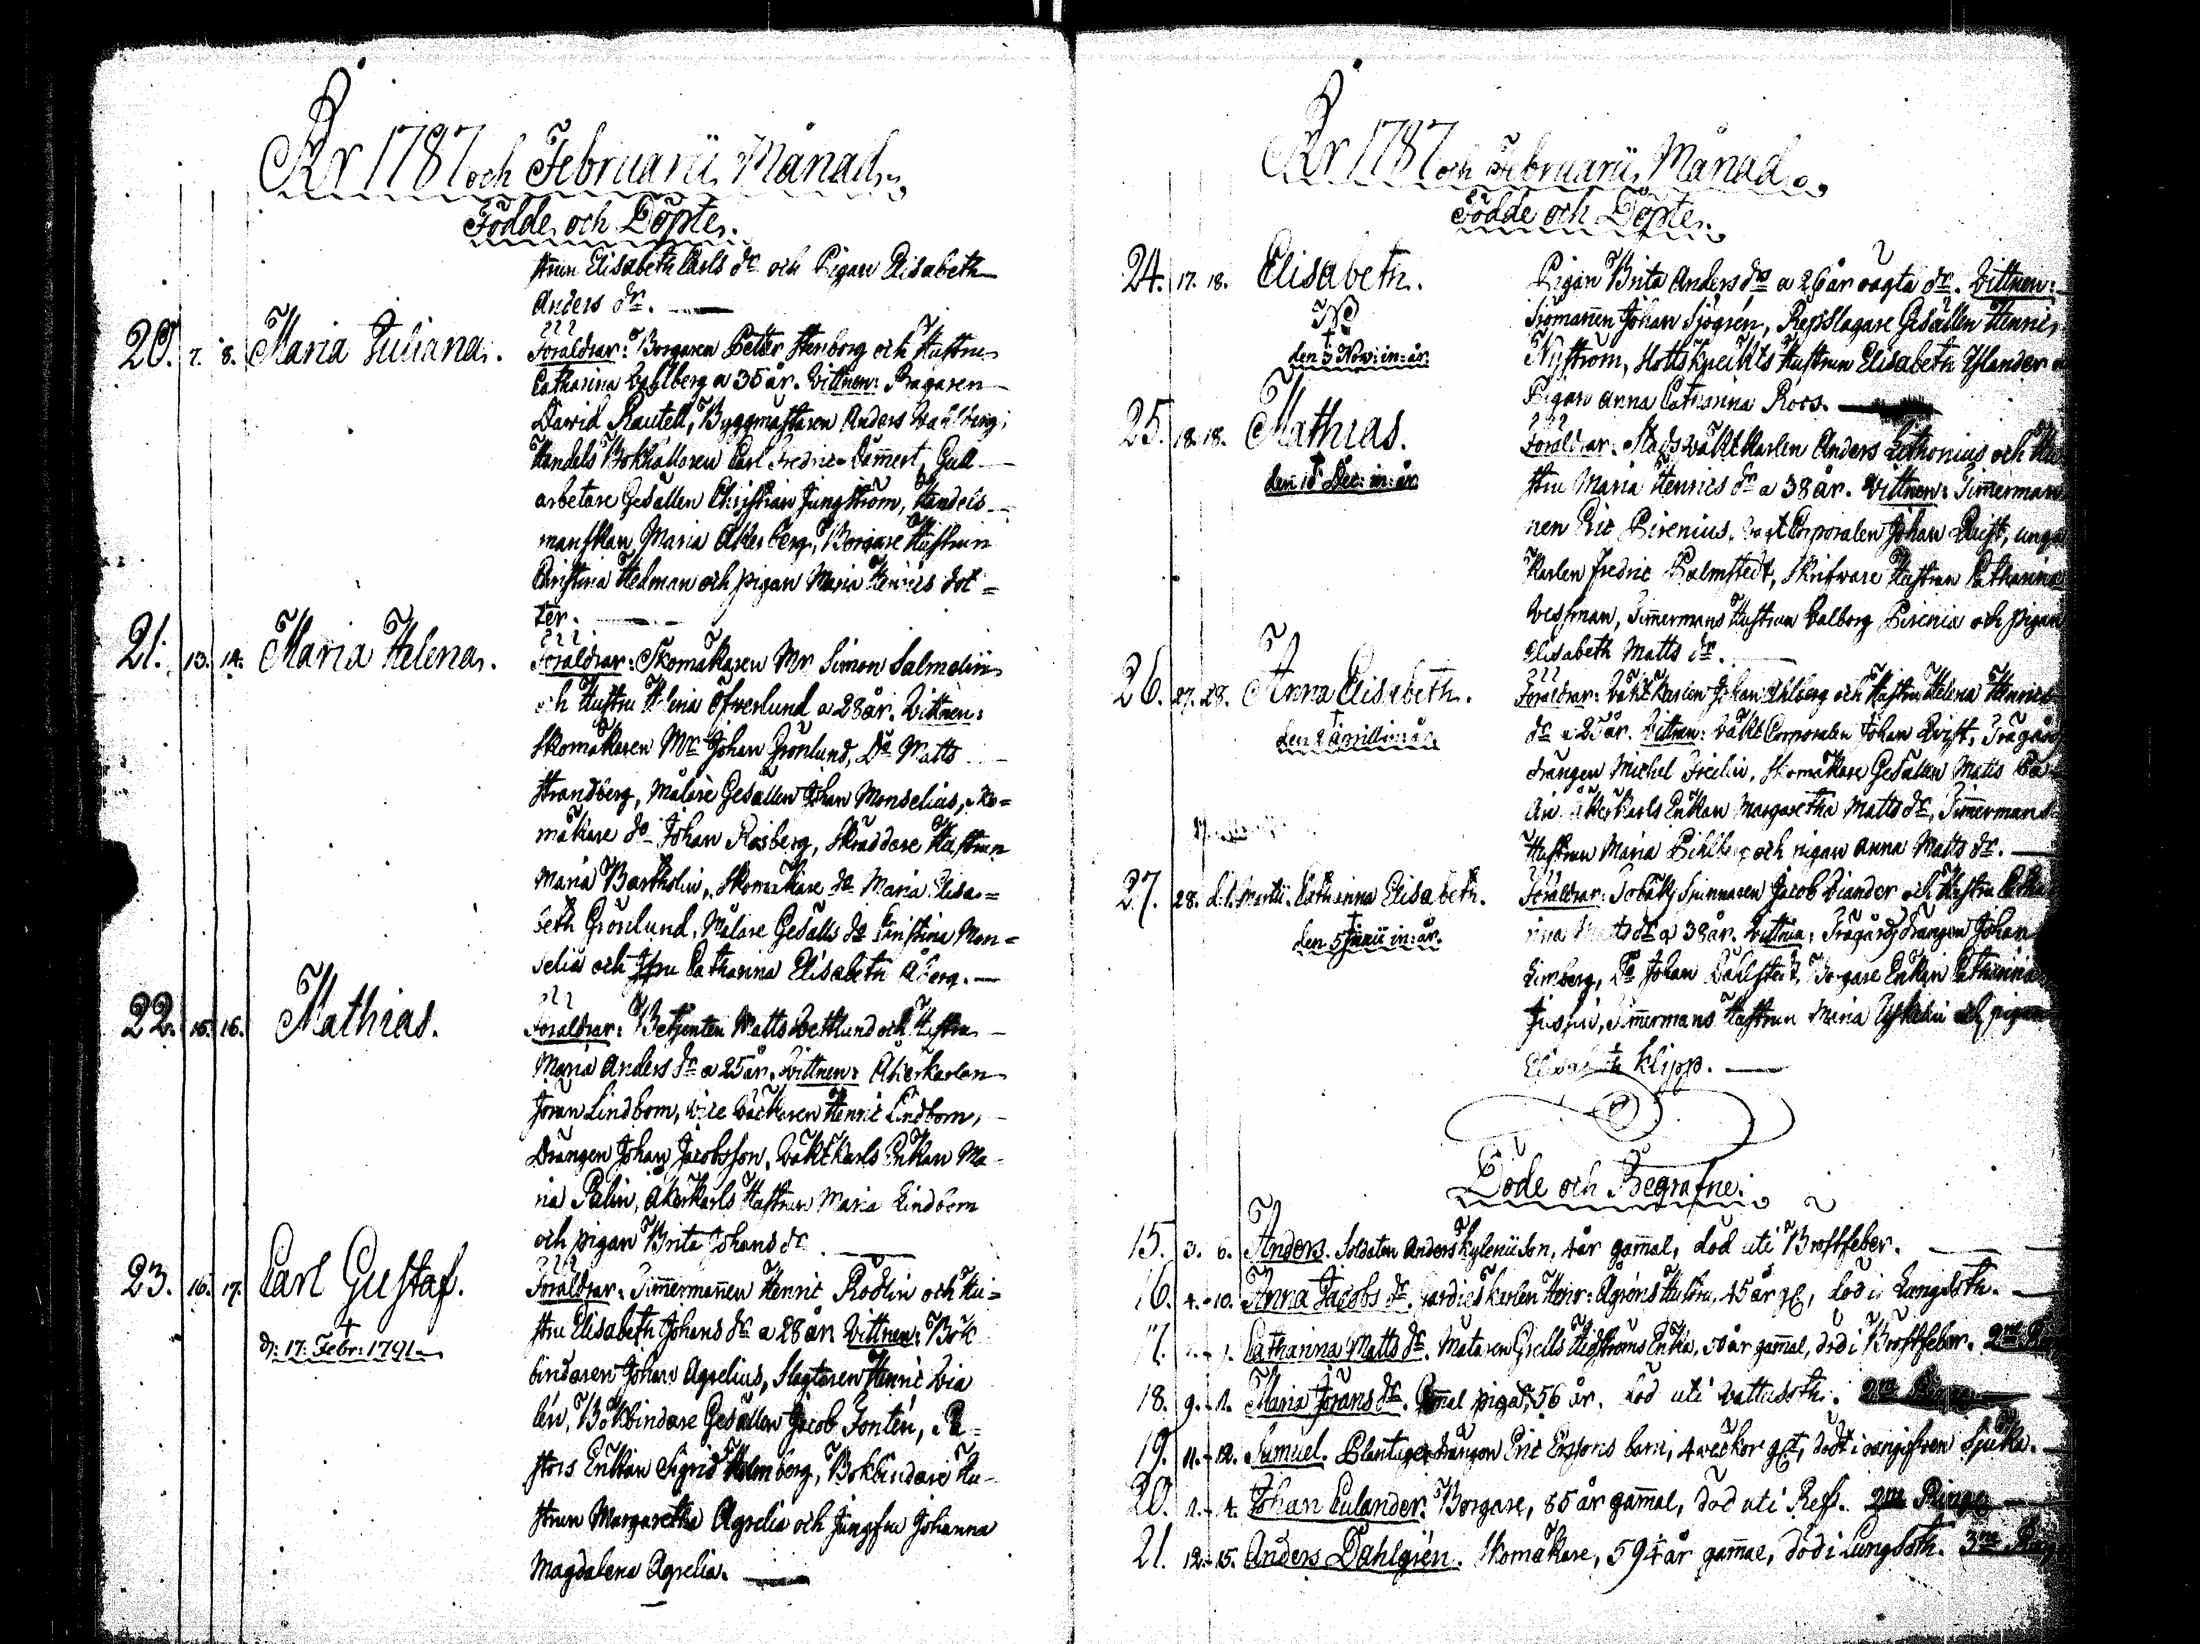 År 1787 och Februarii Månad.
Födde och Döpte.
strun Elisabeth Carls dr och Pigan Elisabeth
Anders dr.
20. 7. 8. Maria Juliana. Föräldrar: Borgaren Petter Stenborg och Hustru
Catharina Wahlberg a 35 år. Vittnen: Bagaren
David Rautell, Byggmästaren Anders Wahlberg,
Handels Bokhållaren Carl Fredric Dam̄ert, Gull
arbetare Gesällen Christian Ljungström, Handels
manskan Maria Åkerberg, Borgare Hustrun
Christina Hedman och pigan Maria Henrics dot=
ter.
21. 13. 14. Maria Helena. Föräldrar: Skomakaren Mr Simon Salmelin
och Hustru Helena Öfverlund a 28 år. Vittnen:
Skomakaren Mr Johan Grönlund, Do Matts
Strandberg, Målare Gesällen Johan Monselius, Sko=
makare do Johan Rosberg, Skräddare Hustrun
Maria Bartholin, Skomakare do Maria Elisa=
beth Grönlund, Målare Gesälls do Christina Mon=
selia och Jfru Catharina Elisabeth Åberg.
22. 15. 16. Mathias. Föräldrar: Betjenten Matts Wetterlund och Hustru
Maria Anders dr a 25 år. Vittnen: Åkerkarlen
Jöran Lindbom, vice Väcktaren Henric Lindbom,
Drängen Johan Jacobsson, Wåktkarls Enkan Ma=
ria Palin, Åkerkarls Hustrun Maria Lindbom
och pigan Brita Johans dr
23. 16. 17. Carl Gustaf. Föräldrar: Tim̄erman̄en Henric Rödlin och Hu=
stru Elisabeth Johans dr a 28 år. Vittnen: Bok
d: 17: Febr: 1791
bindaren Johan Agrelius, Slagtaren Henric Wia
lén, Bokbindare Gesällen Jacob Fontén, Pa=
stors Enkan Sigrid Holmberg, Bokbindare Hu=
strun Margaretha Agrelia och Jungfru Johanna
Magdalena Agrelia.
År 1787 och Februarii Månad.
Födde och Döpte.
24. 17. 18. Elisabeth. Pigan Brita Anders dr a 26 år oägta dr. Vittnen:
Sjöman̄en Johan Sjögrén, Repslagare Gesällen Henric
den 3 Nov: in: år.
Nyström, Slottsknechts Hustrun Elisabeth Ylander
Pigan Anna Catharina Roos.
25. 18. 18. Mathias. Föräldrar: Stads wåktkarlen Anders Lithonius och Hu
den 18 Dec: in: år.
stru Maria Henrics dr a 38 år. Vittnen: Tim̄erman
nen Eric Pirenius, Corporalen Johan Qvist, unga
Karlen Fredric Palmstedt, Skrifvare Hustrun Catharina
Wessman, Tim̄ermans Hustrun Walborg Pirenia och pigan
Elisabeth Matts dr.
26. 27. 28. Anna Elisabeth. Föräldrar: Wåktkarlen Johan Ahlberg och Hustru Helena Henrics
dr a 25 år. Vittnen: Wåkt Corporalen Johan Qvist, Trägårds
drängen Michel Frelin, Skomakare Gesällen Matts
Åkerkarls Enkan Margaretha Matts dr, Tim̄ermans
Hustrun Maria Pihlberg och pigan Anna Matts dr.
27. 28. d. 1. Martii. Catharina Elisabeth. Föräldrar: Tobaks Spinnaren Jacob Wiander och Hustru Catha
den 5 Junii in: år.
rina Matts dr a 38 år. Vittnen: Trägårds Drängen Johan
Limberg, Do Johan Dahlstedt, Borgare Enkan Catharina
Tim̄ermans Hustrun Maria och pigan
Elisabeth Klipp.
Döde och Begrafne.
15. 3. 6. Anders. Soldaten Anders Kylenii Son, 4 år gam̄al, död uti Bröstfeber.
16. 4. 10. Anna Jacobs dr. Gardieskarlen Henr: Agréns Hustru, 45 år gl, död i Lungsoth.
17. Catharina Matts dr. Mataren Grells Hedströms Enka, 50 år gam̄al, död i Bröstfeber. 2ne
18. 9. Maria Jörans dr. Gam̄al piga, 56 år. död uti Wattusoth. 2ne
19. 11. 12. Samuel. Plantage drängen Eric Erssons barn, 4 weckor gl, dödt i Sjuka.
20. 1. 4. Johan Eulander. Borgare, 85 år gam̄al, död uti Ref. 2ne Ringn
21. 12. 15. Anders Dahlgrén. Skomakare, 59½ år gam̄al, död i Lungsoth. 3ne